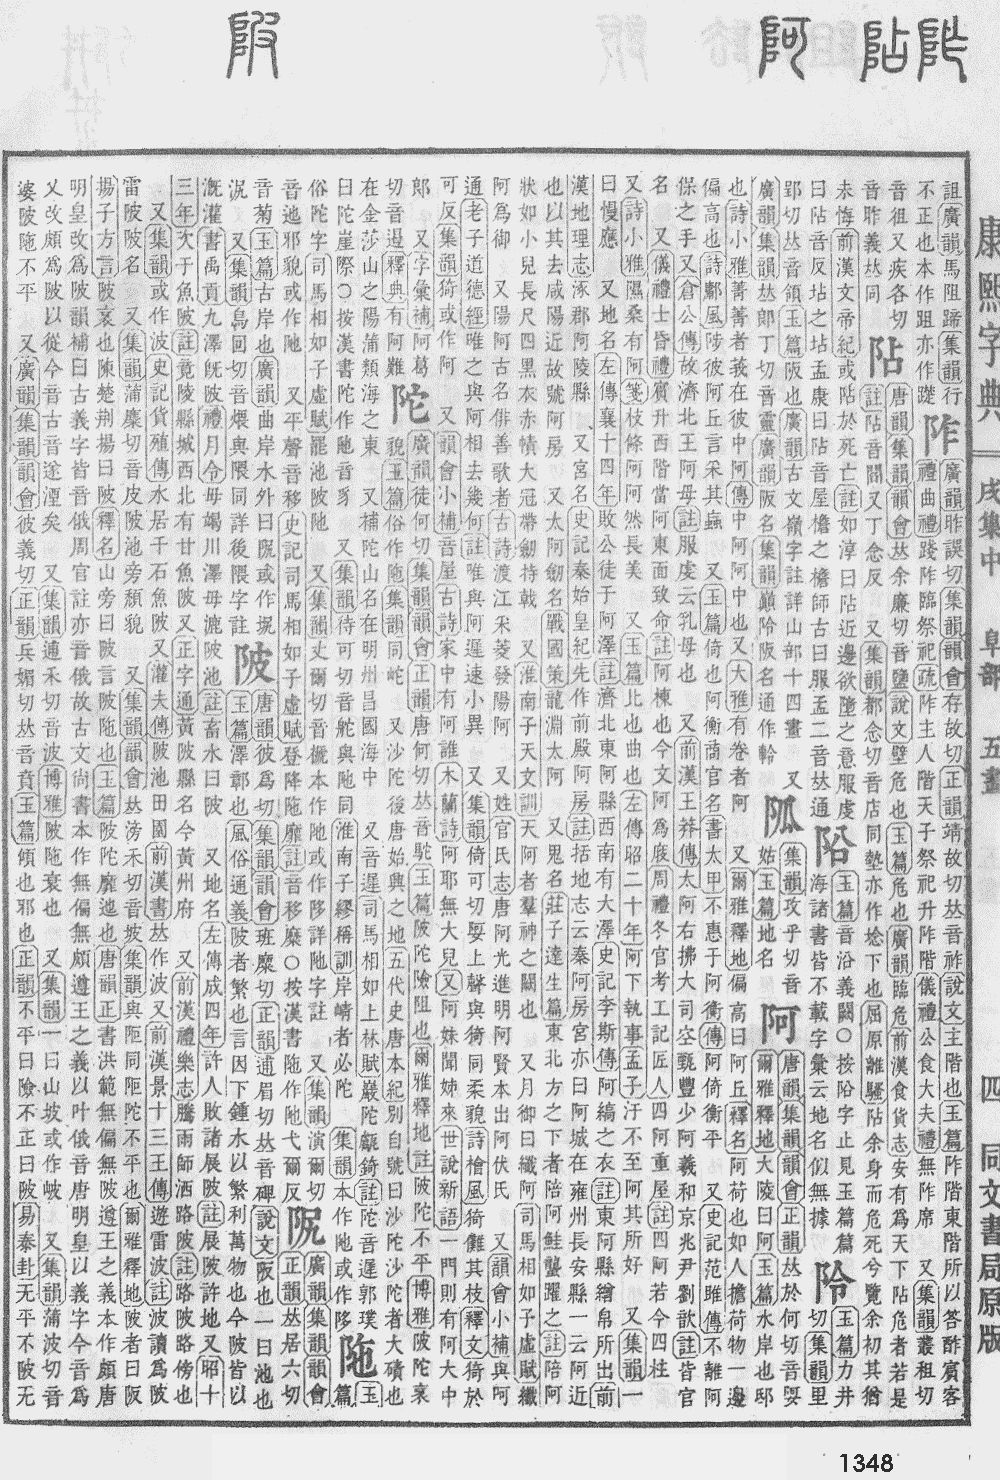 阼
阽
阿
陂
康熙字典 戌集中 阜部 五畫 四 同文書局原版
詛廣韻馬阻蹄集韻行 阼 廣韻昨誤切集韻韻會存故切正韻靖故切𠀤音祚說文主階也玉篇阼階東階所以答酢賓客
不正也本作跙亦作䠡 禮曲禮踐阼臨祭祀疏阼主人階天子祭祀升阼階儀禮公食大夫禮無阼席 又集韻叢租切
音祖又疾各切 阽 唐韻集韻韻會𠀤余廉切音鹽說文壁危也玉篇危也廣韻臨危前漢食貨志安有為天下阽危者若是
音昨義𠀤同 註阽音閻又丁念反 又集韻都念切音店同墊亦作埝下也屈原離騷阽余身而危死兮覽余初其猶
未悔前漢文帝紀或阽於死亡註如淳曰阽近邊欲墮之意服虔 阾 玉篇音沿義闕○按阾字止見玉篇篇
曰阽音反坫之坫孟康曰阽音屋檐之檐師古曰服孟二音𠀤通 海諸書皆不載字彙云地名似無據 阾 玉篇力井切集韻里
郢切𠀤音領玉篇阪也廣韻古文嶺字註詳山部十四畫 又 㧓 集韻攻乎切音姑玉篇地名 阿 唐韻集韻韻會正韻𠀤於何切音娿
廣韻集韻𠀤郎丁切音靈廣韻阪名集韻巔阾阪名通作軨 爾雅釋地大陵曰阿玉篇水岸也邸
也詩小雅菁菁者莪在彼中阿傳中阿阿中也又大雅有卷者阿 又爾雅釋地偏高曰阿丘釋名阿荷也如人擔荷物一邊
偏高也詩鄘風陟彼阿丘言采其蝱 又玉篇倚也阿衡商官名書太甲不惠于阿衡傳阿倚衡平 又史記范雎傳不離阿
保之手又倉公傳故濟北王阿母註服虔云乳母也 又前漢王莽傳太阿右拂大司空甄豐少阿羲和京兆尹劉歆註皆官
名 又儀禮士昏禮賓升西階當阿東面致命註阿棟也今文阿為庪周禮冬官考工記匠人四阿重屋註四阿若今四柱
又詩小雅隰桑有阿箋枝條阿阿然長美 又玉篇北也曲也左傳昭二十年阿下執事孟子汙不至阿其所好 又集韻一
曰慢應 又地名左傳襄十四年敗公徒于阿澤註濟北東阿縣西南有大澤史記李斯傳阿縞之衣註東阿縣繒帛所出前
漢地理志涿郡阿陵縣 又宮名史記秦始皇紀先作前殿阿房註括地志云秦阿房宮亦曰阿城在雍州長安縣一云阿近
也以其去咸陽近故號阿房 又太阿劒名戰國策龍淵太阿 又鬼名莊子達生篇東北方之下者陪阿鮭蠪躍之註陪阿
狀如小兒長尺四黑衣赤幘大冠帶劒持戟 又淮南子天文訓天阿者羣神之闕也 又月御曰纖阿司馬相如子虛賦纖
阿為御 又陽阿古名俳善歌者古詩渡江采菱發陽阿 又姓官氏志唐阿光進明阿賢本出阿伏氏 又韻會小補與呵
通老子道德經唯之與阿相去幾何註唯與阿遲速小異 又集韻倚可切娿上聲與𢕛同柔貌詩檜風猗儺其枝釋文猗於
可反集韻猗或作阿 又韻會小補音屋古詩家中有阿誰木蘭詩阿耶無大兒又阿妹聞姊來世說新語一門則有阿大中
郎 又字彙補阿葛切音遏釋典有阿難 陀 廣韻徒何切集韻韻會正韻唐何切𠀤音駝玉篇陂陀險阻也爾雅釋地註陂陀不平博雅陂陀衺
貌玉篇俗作陁集韻同岮 又沙陀後唐始興之地五代史唐本紀別自號曰沙陀沙陀者大磧也
在金莎山之陽蒲類海之東 又補陀山名在明州昌國海中 又音遲司馬相如上林賦巖陀甗錡註陀音遲郭璞
曰陀崖際○按漢書陀作阤音豸 又集韻待可切音舵與阤同淮南子繆稱訓岸崝者必陀 集韻本作阤或作陊 陁 玉篇
俗陀字司馬相如子虛賦罷池陂阤 又集韻丈爾切音褫本作阤或作陊詳阤字註 又集韻演爾切
音迆邪貌或作阤 又平聲音移史記司馬相如子虛賦登降陁靡註音移糜○按漢書陁作阤弋爾反 阸 廣韻集韻韻會正韻𠀤居六切
音菊玉篇古岸也廣韻曲岸水外曰阸或作坭 陂 唐韻彼為切集韻韻會班糜切正韻逋眉切𠀤音碑說文阪也一曰池也
況 又集韻烏回切音煨與隈同詳後隈字註 玉篇澤鄣也風俗通義陂者繁也言因下鍾水以繁利萬物也今陂皆以
漑灌書禹貢九澤旣陂禮月令毋竭川澤毋漉陂池註畜水曰陂 又地名左傳成四年許人敗諸展陂註展陂許地又昭十
三年次于魚陂註竟陵縣城西北有甘魚陂又正字通黃陂縣名今黃州府 又前漢禮樂志騰雨師洒路陂註路陂路傍也
又集韻或作波史記貨殖傳水居千石魚陂又灌夫傳陂池田園前漢書𠀤作波又前漢景十三王傳遊雷波註波讀為陂
雷陂陂名 又集韻蒲糜切音皮陂池旁頹貌 又集韻韻會𠀤滂禾切音坡集韻與阺同阺陀不平也爾雅釋地陂者曰阪
揚子方言陂衺也陳楚荆揚曰陂釋名山旁曰陂言陂陁也玉篇陂陀靡迤也唐韻正書洪範無偏無陂遵王之義本作頗唐
明皇改為陂韻補曰古義字皆音俄周官註亦音俄故古文尚書本作無偏無頗遵王之義以叶俄音唐明皇以義字今音為
乂改頗為陂以從今音古音遂湮矣 又集韻逋禾切音波博雅陂陁衰也 又集韻一曰山坡或作岐 又集韻蒲波切音
婆陂陁不平 又廣韻集韻韻會彼義切正韻兵媚切𠀤音賁玉篇傾也邪也正韻不平曰險不正曰陂易泰卦无平不陂无
1348